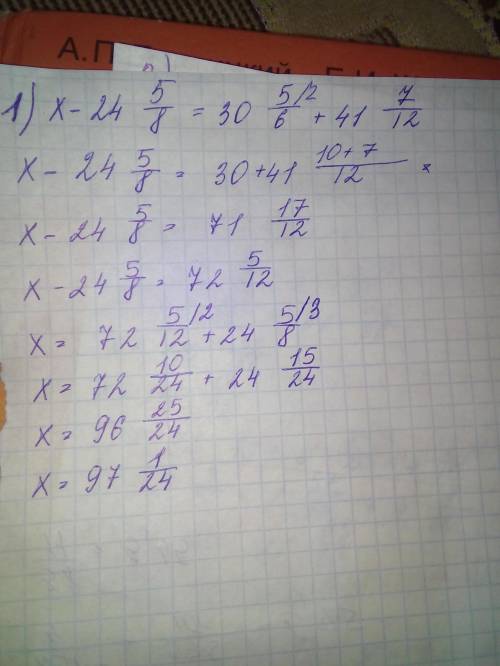 А.П
1) x - 24 5/8 = 30 5/6 /2 + 41 7/12
x - 24 5/8 = 30 + 41 (10+7)/12
x - 24 5/8 = 71 17/12
x - 24 5/8 = 72 5/12
x = 72 5/12 /2 + 24 5/8 /3
x = 72 10/24 + 24 15/24
x = 96 25/24
x = 97 1/24